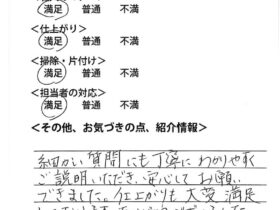 満足 普通 不満
<仕上がり>
満足 普通 不満
<掃除・片付け>
満足 普通 不満
<担当者の対応>
満足 普通 不満
<その他、お気づきの点、紹介情報>
細かい質問にも丁寧にわかりやすく
ご説明いただき、安心してお願い
できました。仕上がりも大変満足